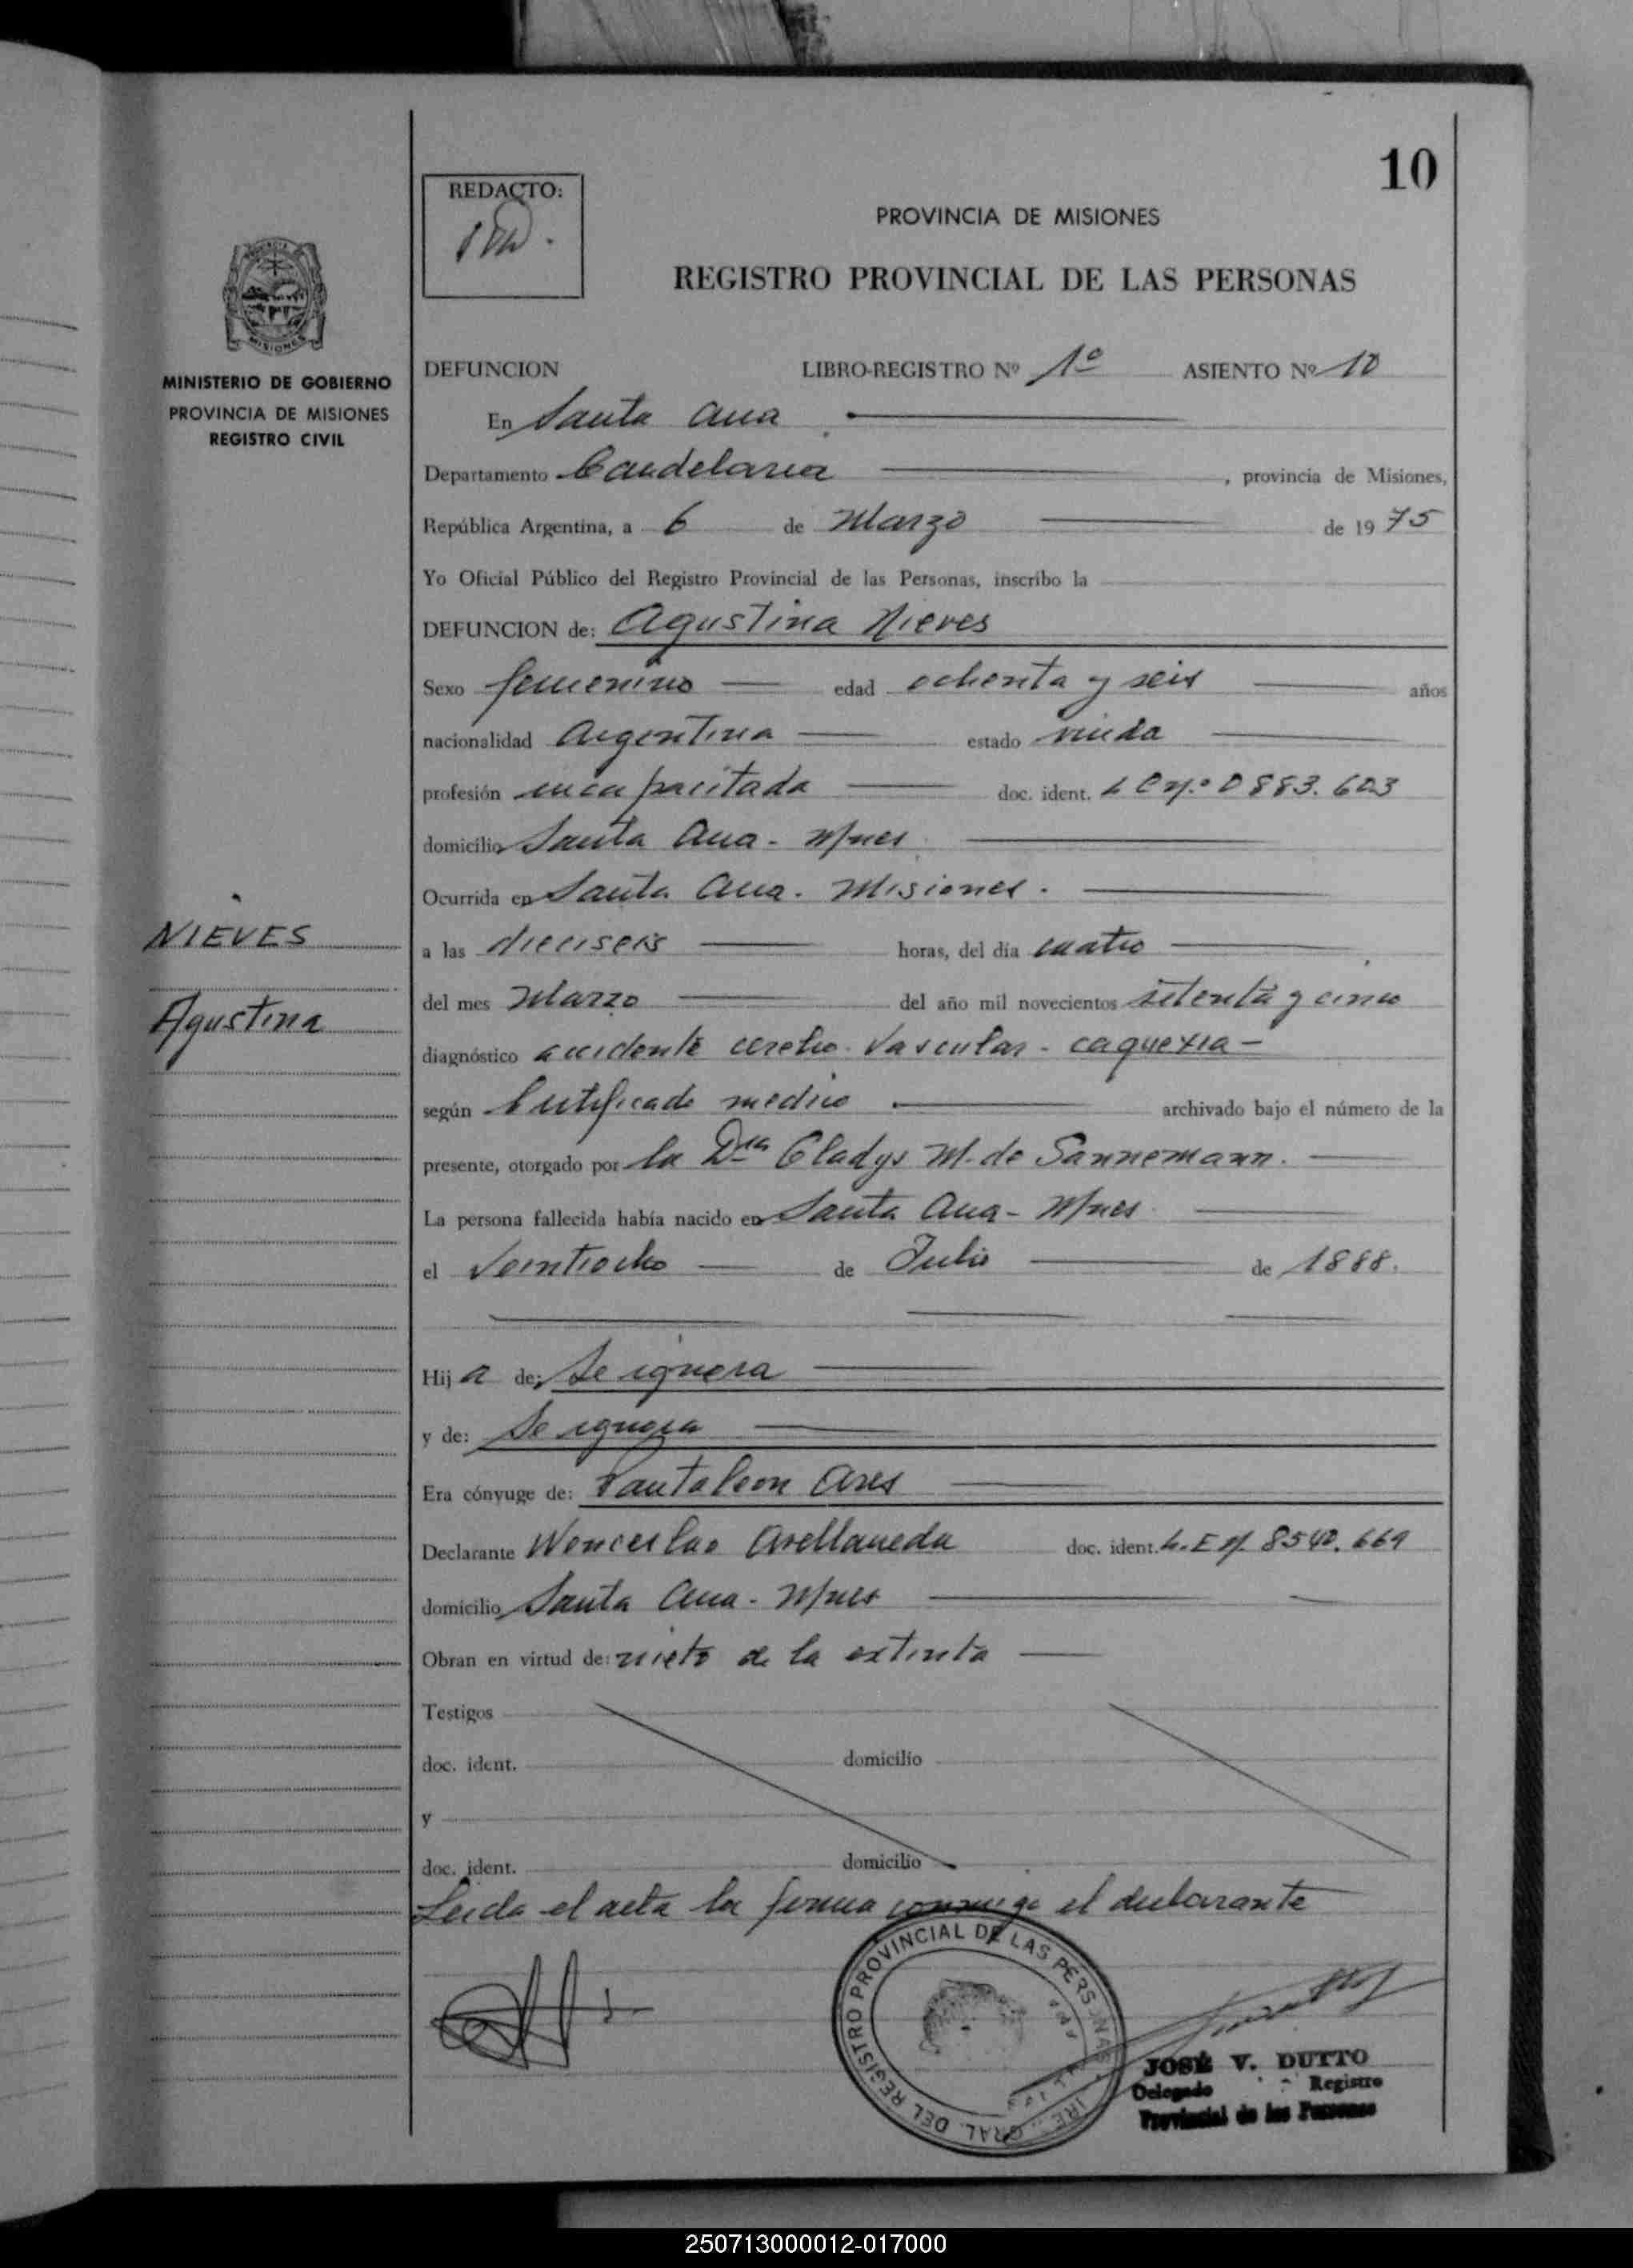 10
REDACTO:
PROVINCIA DE MISIONES
REGISTRO PROVINCIAL DE LAS PERSONAS
MISIONES
MINISTERIO DE GOBIERNO
PROVINCIA DE MISIONES
REGISTRO CIVIL
DEFUNCION LIBRO-REGISTRO Nº 1º ASIENTO Nº 10
En Santa Ana
Departamento Candelaria , provincia de Misiones,
República Argentina, a 6 de Marzo de 19 75
Yo Oficial Público del Registro Provincial de las Personas, inscribo la
DEFUNCION de: Agustina Nieves
Sexo femenino edad ochenta y seis años
nacionalidad Argentina estado viuda
profesión incapacitada doc. ident. L C Nº 0883.603
domicilio Santa Ana - Mnes
Ocurrida en Santa Ana. Misiones.
NIEVES
a las dieciseis horas, del día cuatro
Agustina
del mes Marzo del año mil novecientos setenta y cinco
diagnóstico accidente cerebro-Vascular - caquexia -
según Certificado medico archivado bajo el número de la
presente, otorgado por la Dra Gladys M. de Sannemann.
La persona fallecida había nacido en Santa Ana - Mnes
el Veintiocho de Julio de 1888.
Hij a de: Se ignora
y de: Se ignora
Era cónyuge de: Pantaleon Ares
Declarante Wenceslao Avellaneda doc. ident. L. E Nº 8540.669
domicilio Santa Ana - Mnes
Obran en virtud de: nieto de la extinta
Testigos
doc. ident. domicilio
y
doc. ident. domicilio
Leida el acta la firma conmigo el declarante
REGISTRO PROVINCIAL DE LAS PERSONAS
GRAL. DEL
JOSÉ V. DUTTO
Delegado Registro
Provincial de las Personas
250713000012-017000